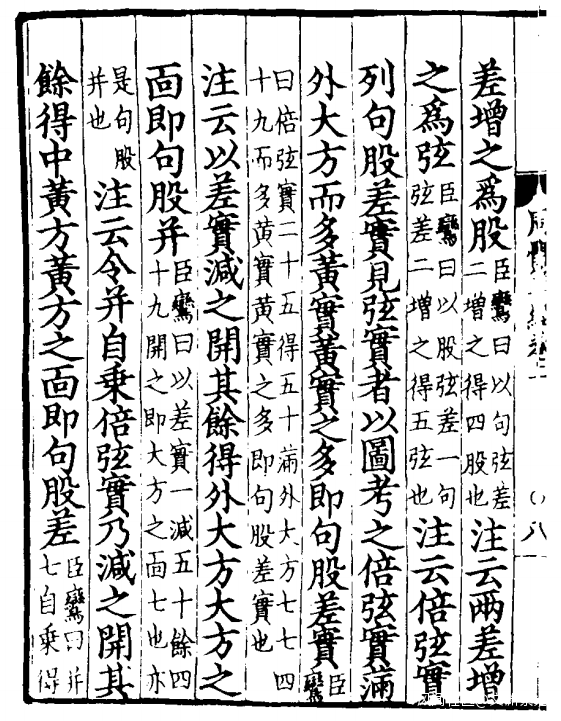 差增之爲股臣鸞曰以句弦差二增之得四股也注云兩差增
之爲弦臣鸞曰以股弦差一句弦差二增之得五弦也注云倍弦實
列句股差實見弦實者以圖考之倍弦實滿
外大方而多黃實黃實之多即句股差實臣鸞
曰倍弦實二十五得五十滿外大方七七四十九而多黃實黃實之多即句股差實也
注云以差實減之開其餘得外大方大方之
面即句股并臣鸞曰以差實一減五十餘四十九開之即大方之面七也亦
是句股并也注云令并自乘倍弦實乃減之開其
餘得中黃方黃方之面即句股差臣鸞曰并七自乘得
八